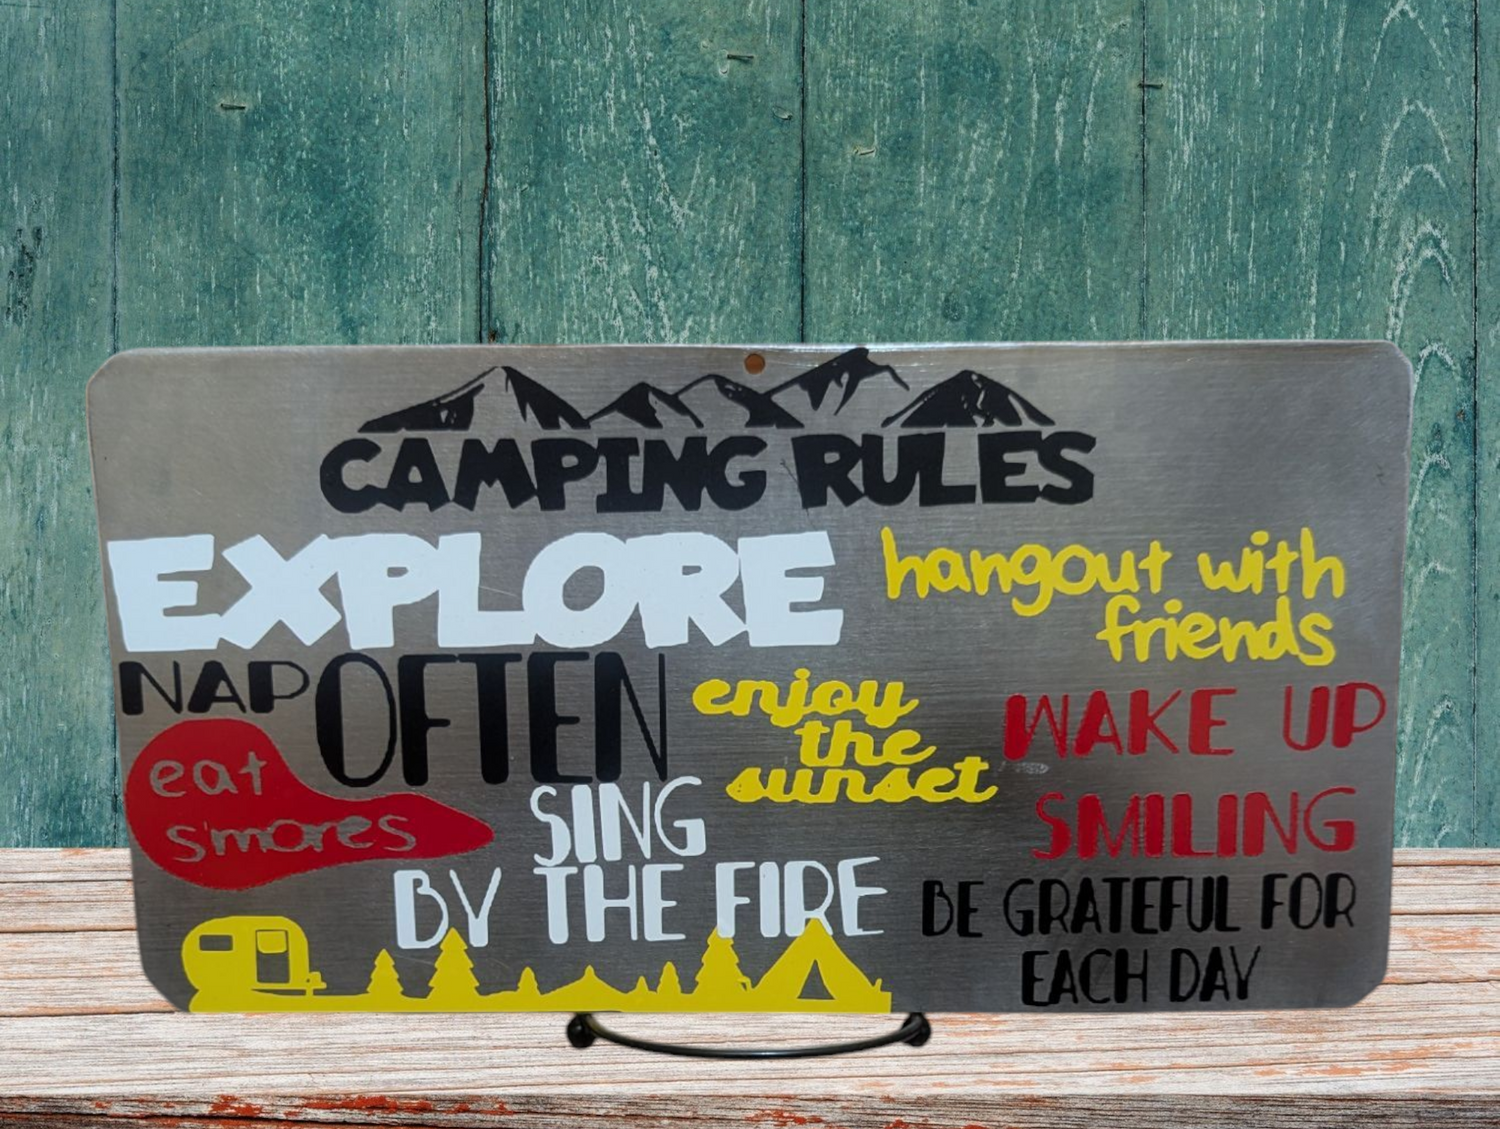 CAMPING RULES
EXPLORE
hangout with
friends
NAP OFTEN
eat
s'mores
enjoy
the
sunset
WAKE UP
SMILING
SING
BY THE FIRE
BE GRATEFUL FOR
EACH DAY